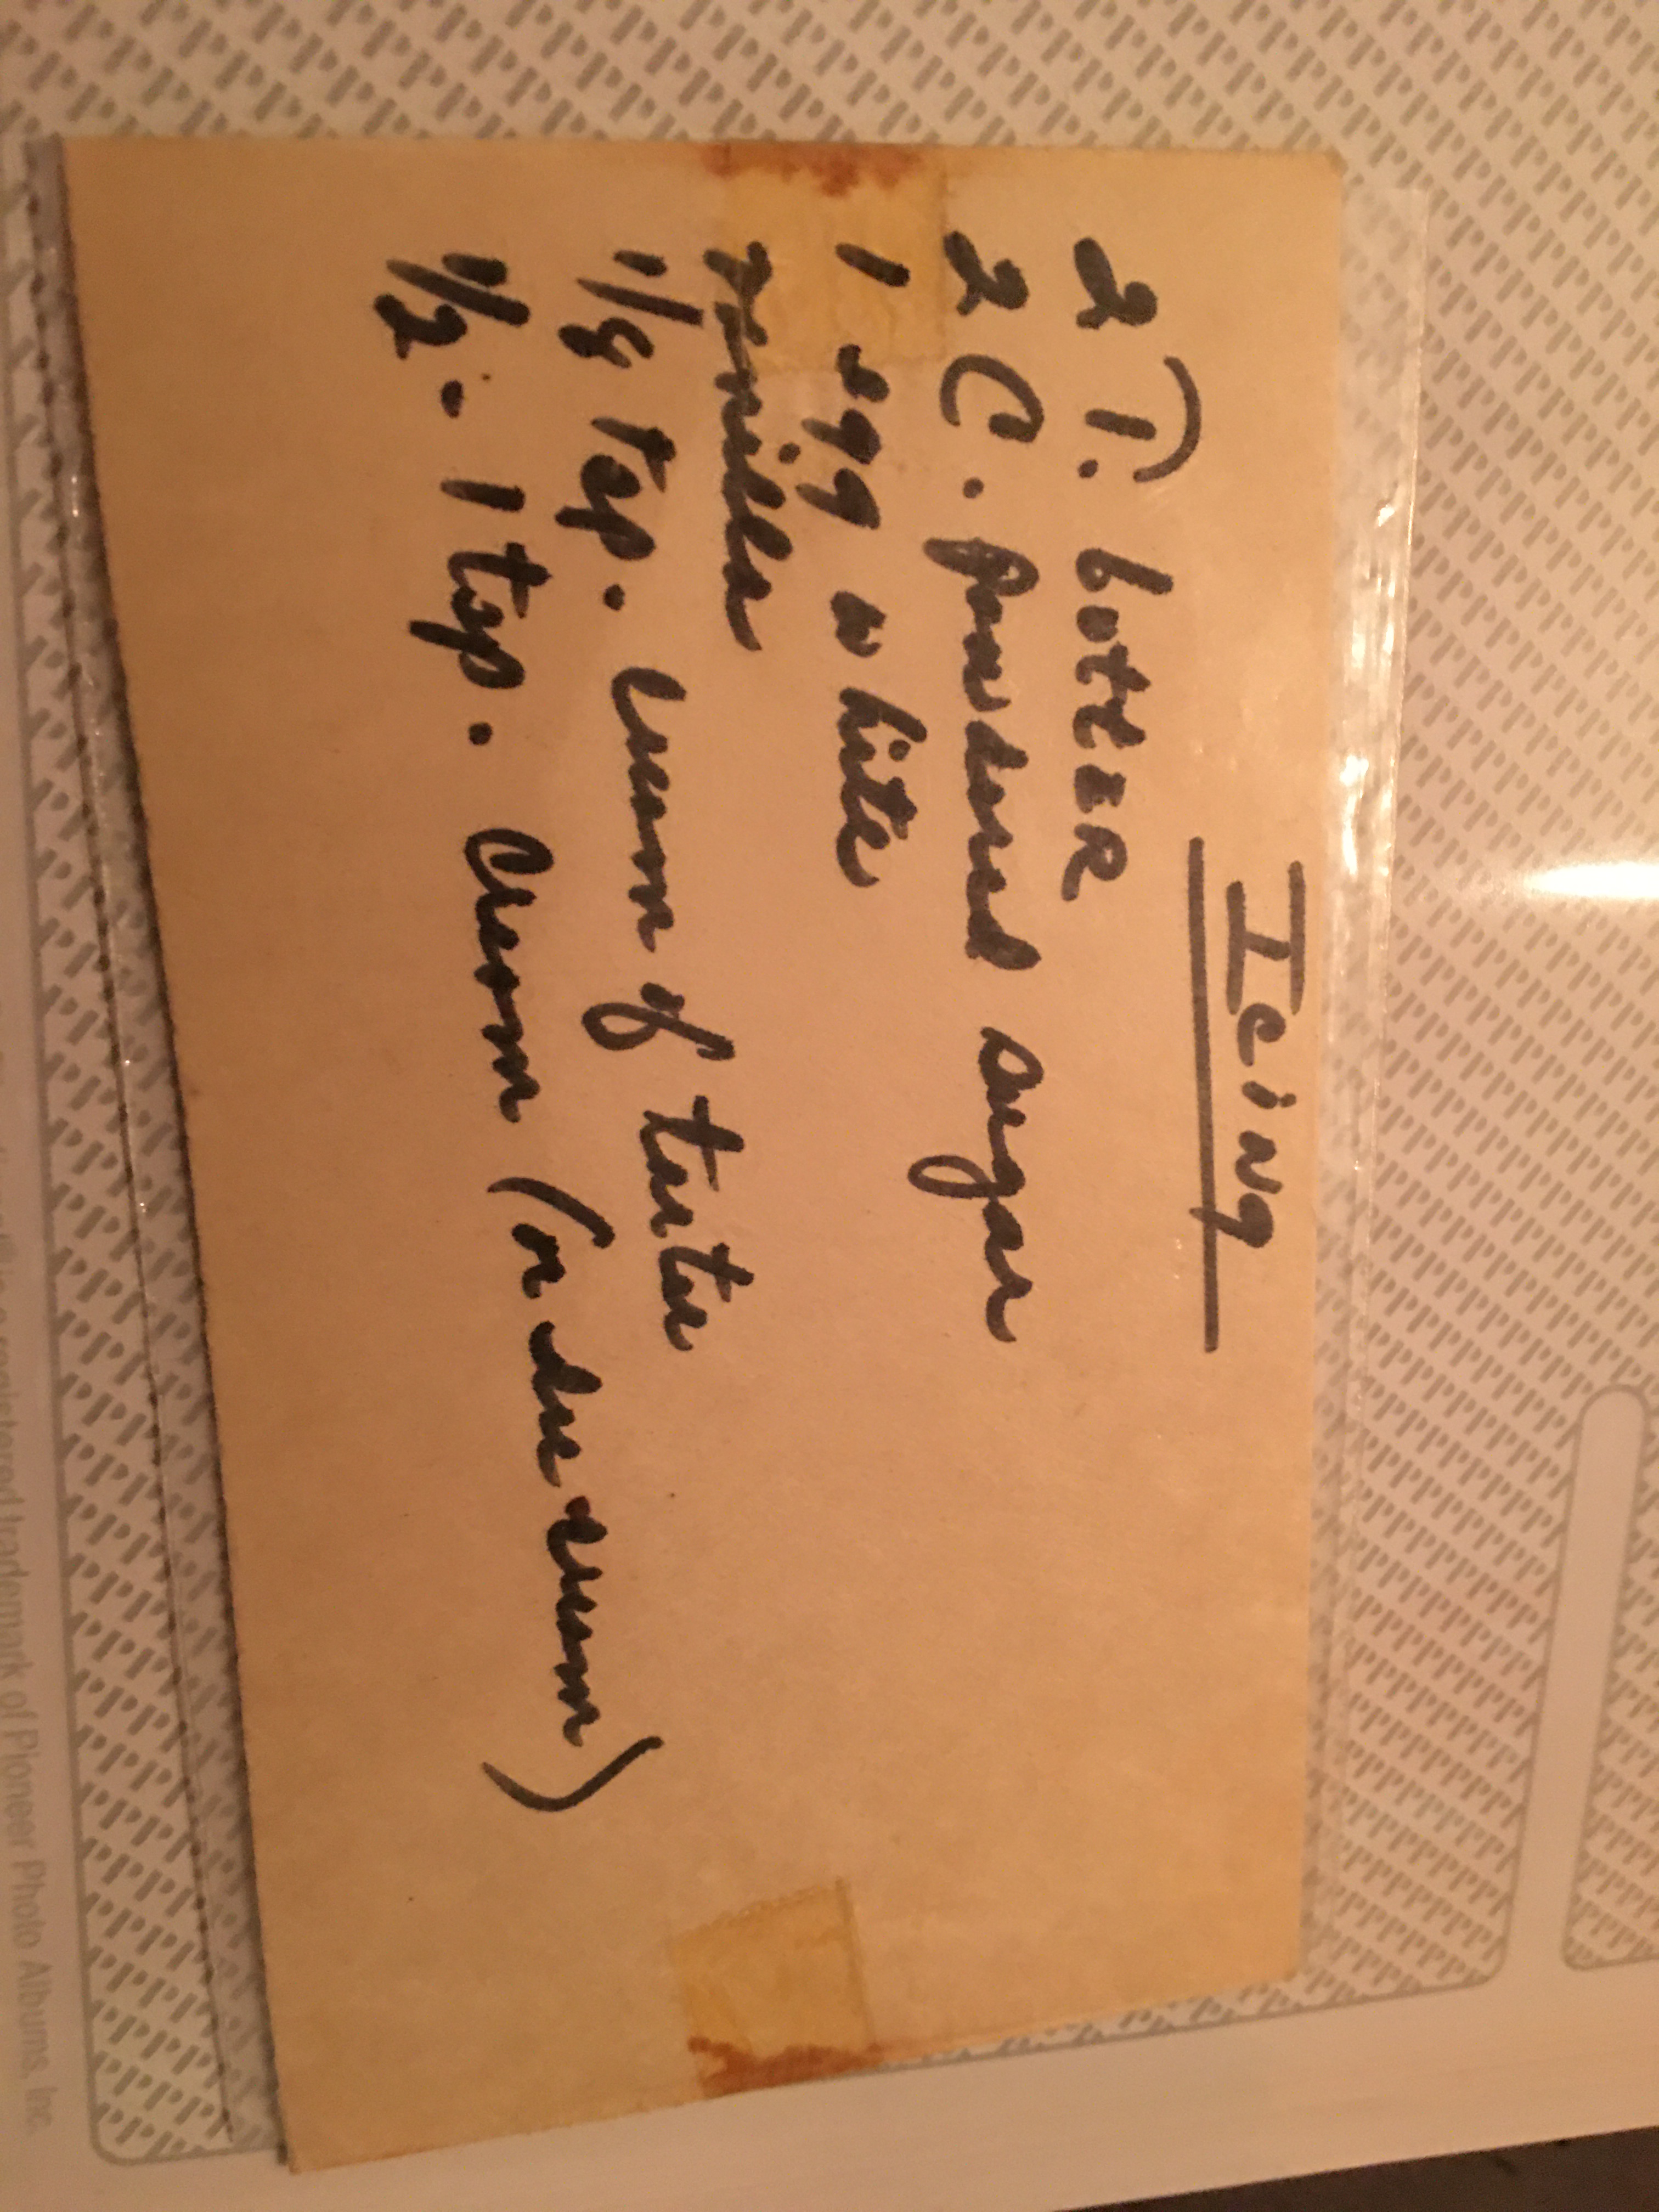 Icing
2 T. butter
2 C. powdered sugar
1 egg white
vanilla
1/8 tsp. cream of tarter
1/2 - 1 tsp. cream (or
trademark of Pioneer Photo Albums, Inc.